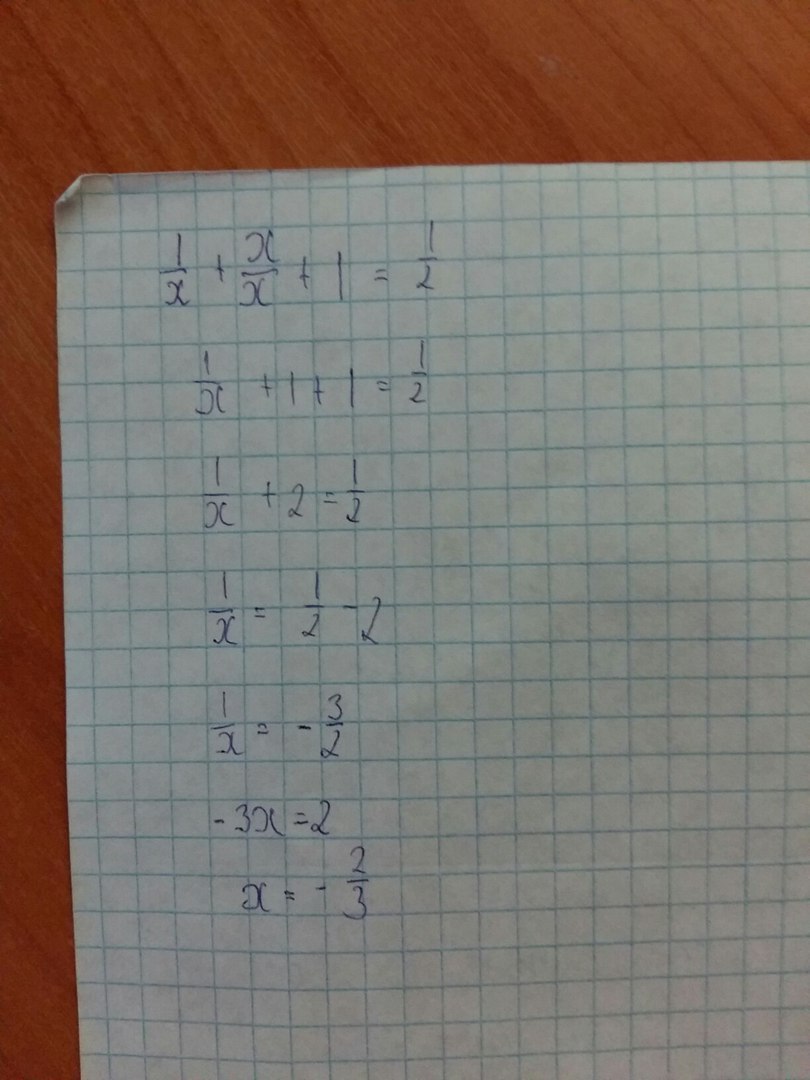 1/x + x/x + 1 = 1/2
1/x + 1 + 1 = 1/2
1/x + 2 = 1/2
1/x = 1/2 - 2
1/x = - 3/2
- 3x = 2
x = - 2/3